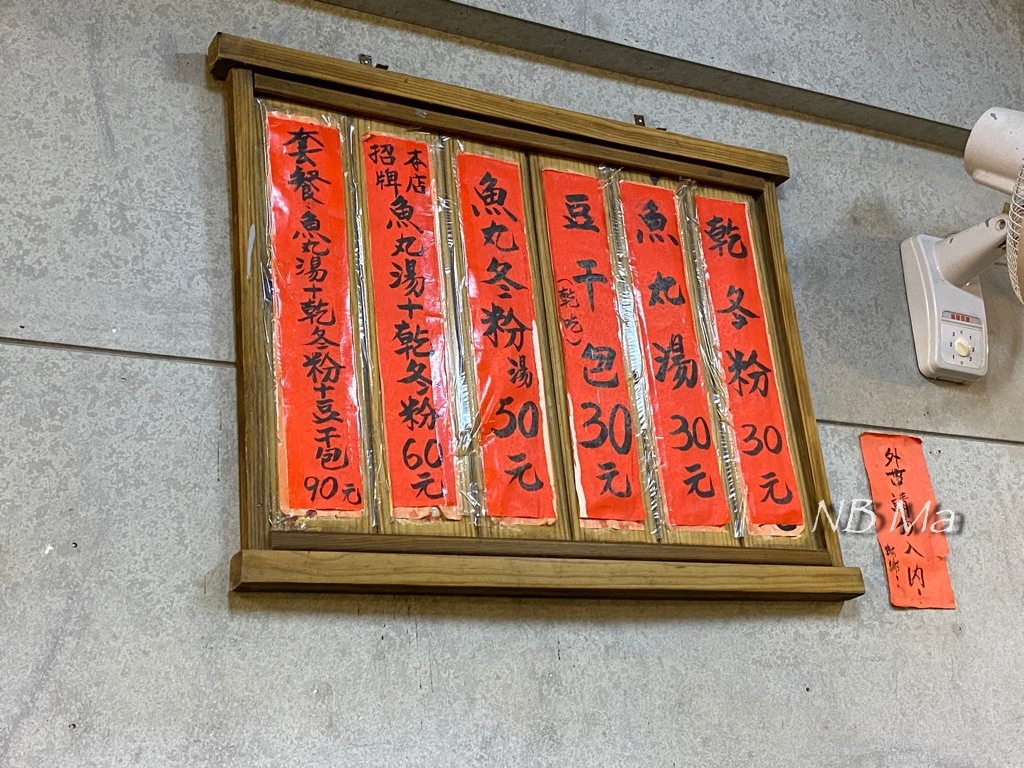 乾冬粉30元
魚丸湯30元
豆干包30元
(乾吃)
魚丸冬粉湯50元
本店
招牌
魚丸湯+乾冬粉60元
套餐、魚丸湯+乾冬粉+豆干包
90元
外
請
入內
謝謝
NB Ma